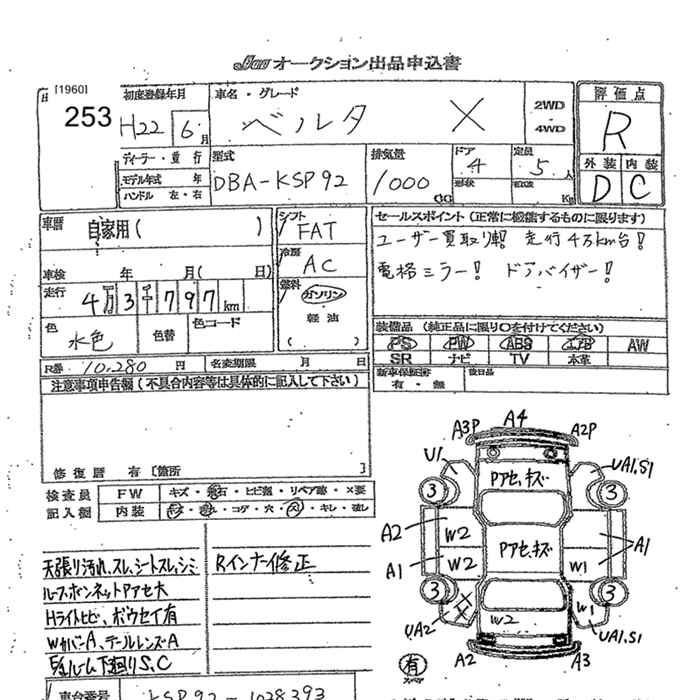 JAA オークション出品申込書
[1960]
253
初度登録年月
H22 6月
車名・グレード
ベルタ X
2WD
4WD
評価点
R
外装 内装
D C
ディーラー・並行
モデル年式 年
ハンドル 左・右
型式
DBA-KSP92
排気量
1000 CC
ドア
4
形状
定員
5人
積載
Kg
車歴
自家用( )
車検 年 月( 日)
走行
4万3千797km
色
水色
色替
色コード
シフト
FAT
冷房
AC
燃料
ガソリン
軽油
( )
セールスポイント(正常に機能するものに限ります)
ユーザー買取り車! 走行4万km台!
電格ミラー! ドアバイザー!
装備品(純正品に限り○を付けてください)
PS PW ABS エアB AW
SR ナビ TV 本革
新車保証書
有・無
後日品
R券 10,280円
名変期限 月 日
注意事項申告欄(不具合内容等は具体的に記入して下さい)
修復歴 有[箇所 ]
検査員
記入欄
FW キズ・飛石・ヒビ割・リペア跡・×要
内装 キズ・コゲ・穴・キレ
天張り汚れ、スレ、シートスレ、シミ
ルーフ・ボンネットPアセ大
Hライトヒビ、ボウセイ有
WカバーA、テールレンズA
E/ルーム下廻りS、C
Rインナー修正
A3P A4 A2P
U1 UA1.S1
Pアセ、キズ
3 3
A2 W2
Pアセ、キズ
A1
A1 W2 W1
3 3
UA2 W2 W1 UA1.S1
A2 A3
有
スペア
車台番号 KSP92-1028393